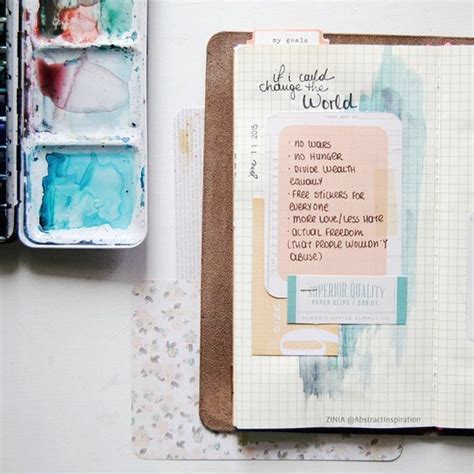 my goals
if i could
change the
World
11 2015
• NO WARS
• NO HUNGER
• DIVIDE WEALTH
EQUALLY
• FREE STICKERS FOR
EVERYONE
• MORE LOVE/LESS HATE
• ACTUAL FREEDOM
(THAT PEOPLE WOULDN'T
ABUSE)
SUPERIOR QUALITY
PAPER CLIPS / 500 CT.
SIZE
9
ZINIA @AbstractInspiration